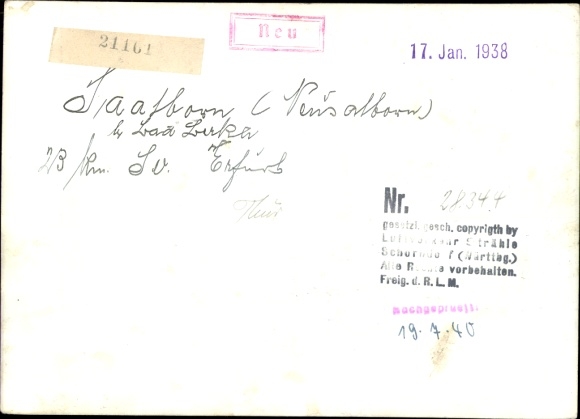 21161
Neu
17. Jan. 1938
Saalborn (Neusalborn)
b/ Bad Berka
23 km. Sö. Erfurt
Thür
Nr. 28344
gesetzl. gesch. copyrigth by
Luftverkehr Strähle
Schorndorf (Württbg.)
Alle Rechte vorbehalten.
Freig. d. R. L. M.
Nachgeprüft:
19. 7. 40